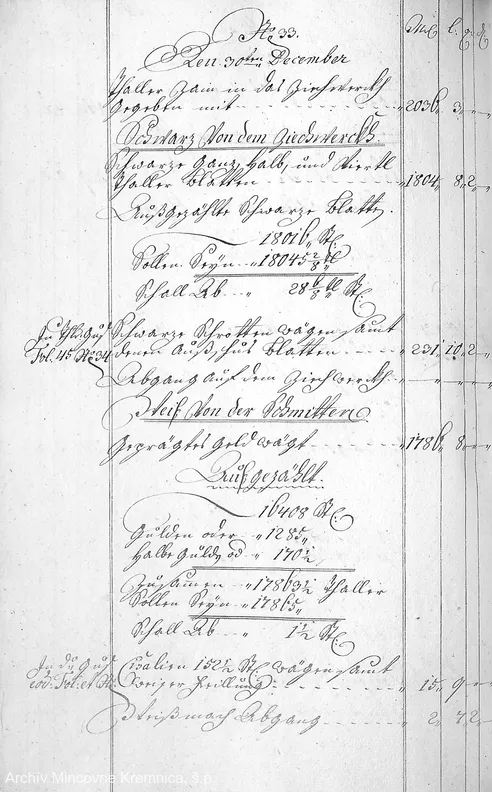 No. 33.
Den 30ten December
Thaller Zain in das Ziehwerckh
gegeben mit 2036 3
Schwarz Von dem Ziechwerckh
Schwarze Ganz, Halb, und Viertl
Thaller blatten 1804 8 2
Außgezählte Schwarze blatten.
18016 St.
Sollen Seyn 18045 2/8 tl
Schall Ab 28 6/8 tl St.
Schwarze Schrotten wägen samt
denen Außschus blatten 231 10 2
Fol. 45 No. 34
Abgang auf dem Ziechwerckh
Weiß Von der Schmitten
Geprägtes Geld wägt 1786 8
Aufgezählt.
16408 St.
Gulden oder 1285
Halbe Guld. od. 170 1/2
Zusamen 17863 1/2 Thaller
Sollen Seyn 17865
Schall Ab 1 1/2 St.
Cisalien 152 1/2 St. wägen samt
weiser Feillung 15 9
Weißmach Abgang 2 7 2
Archív Mincovne Kremnica, š.p.